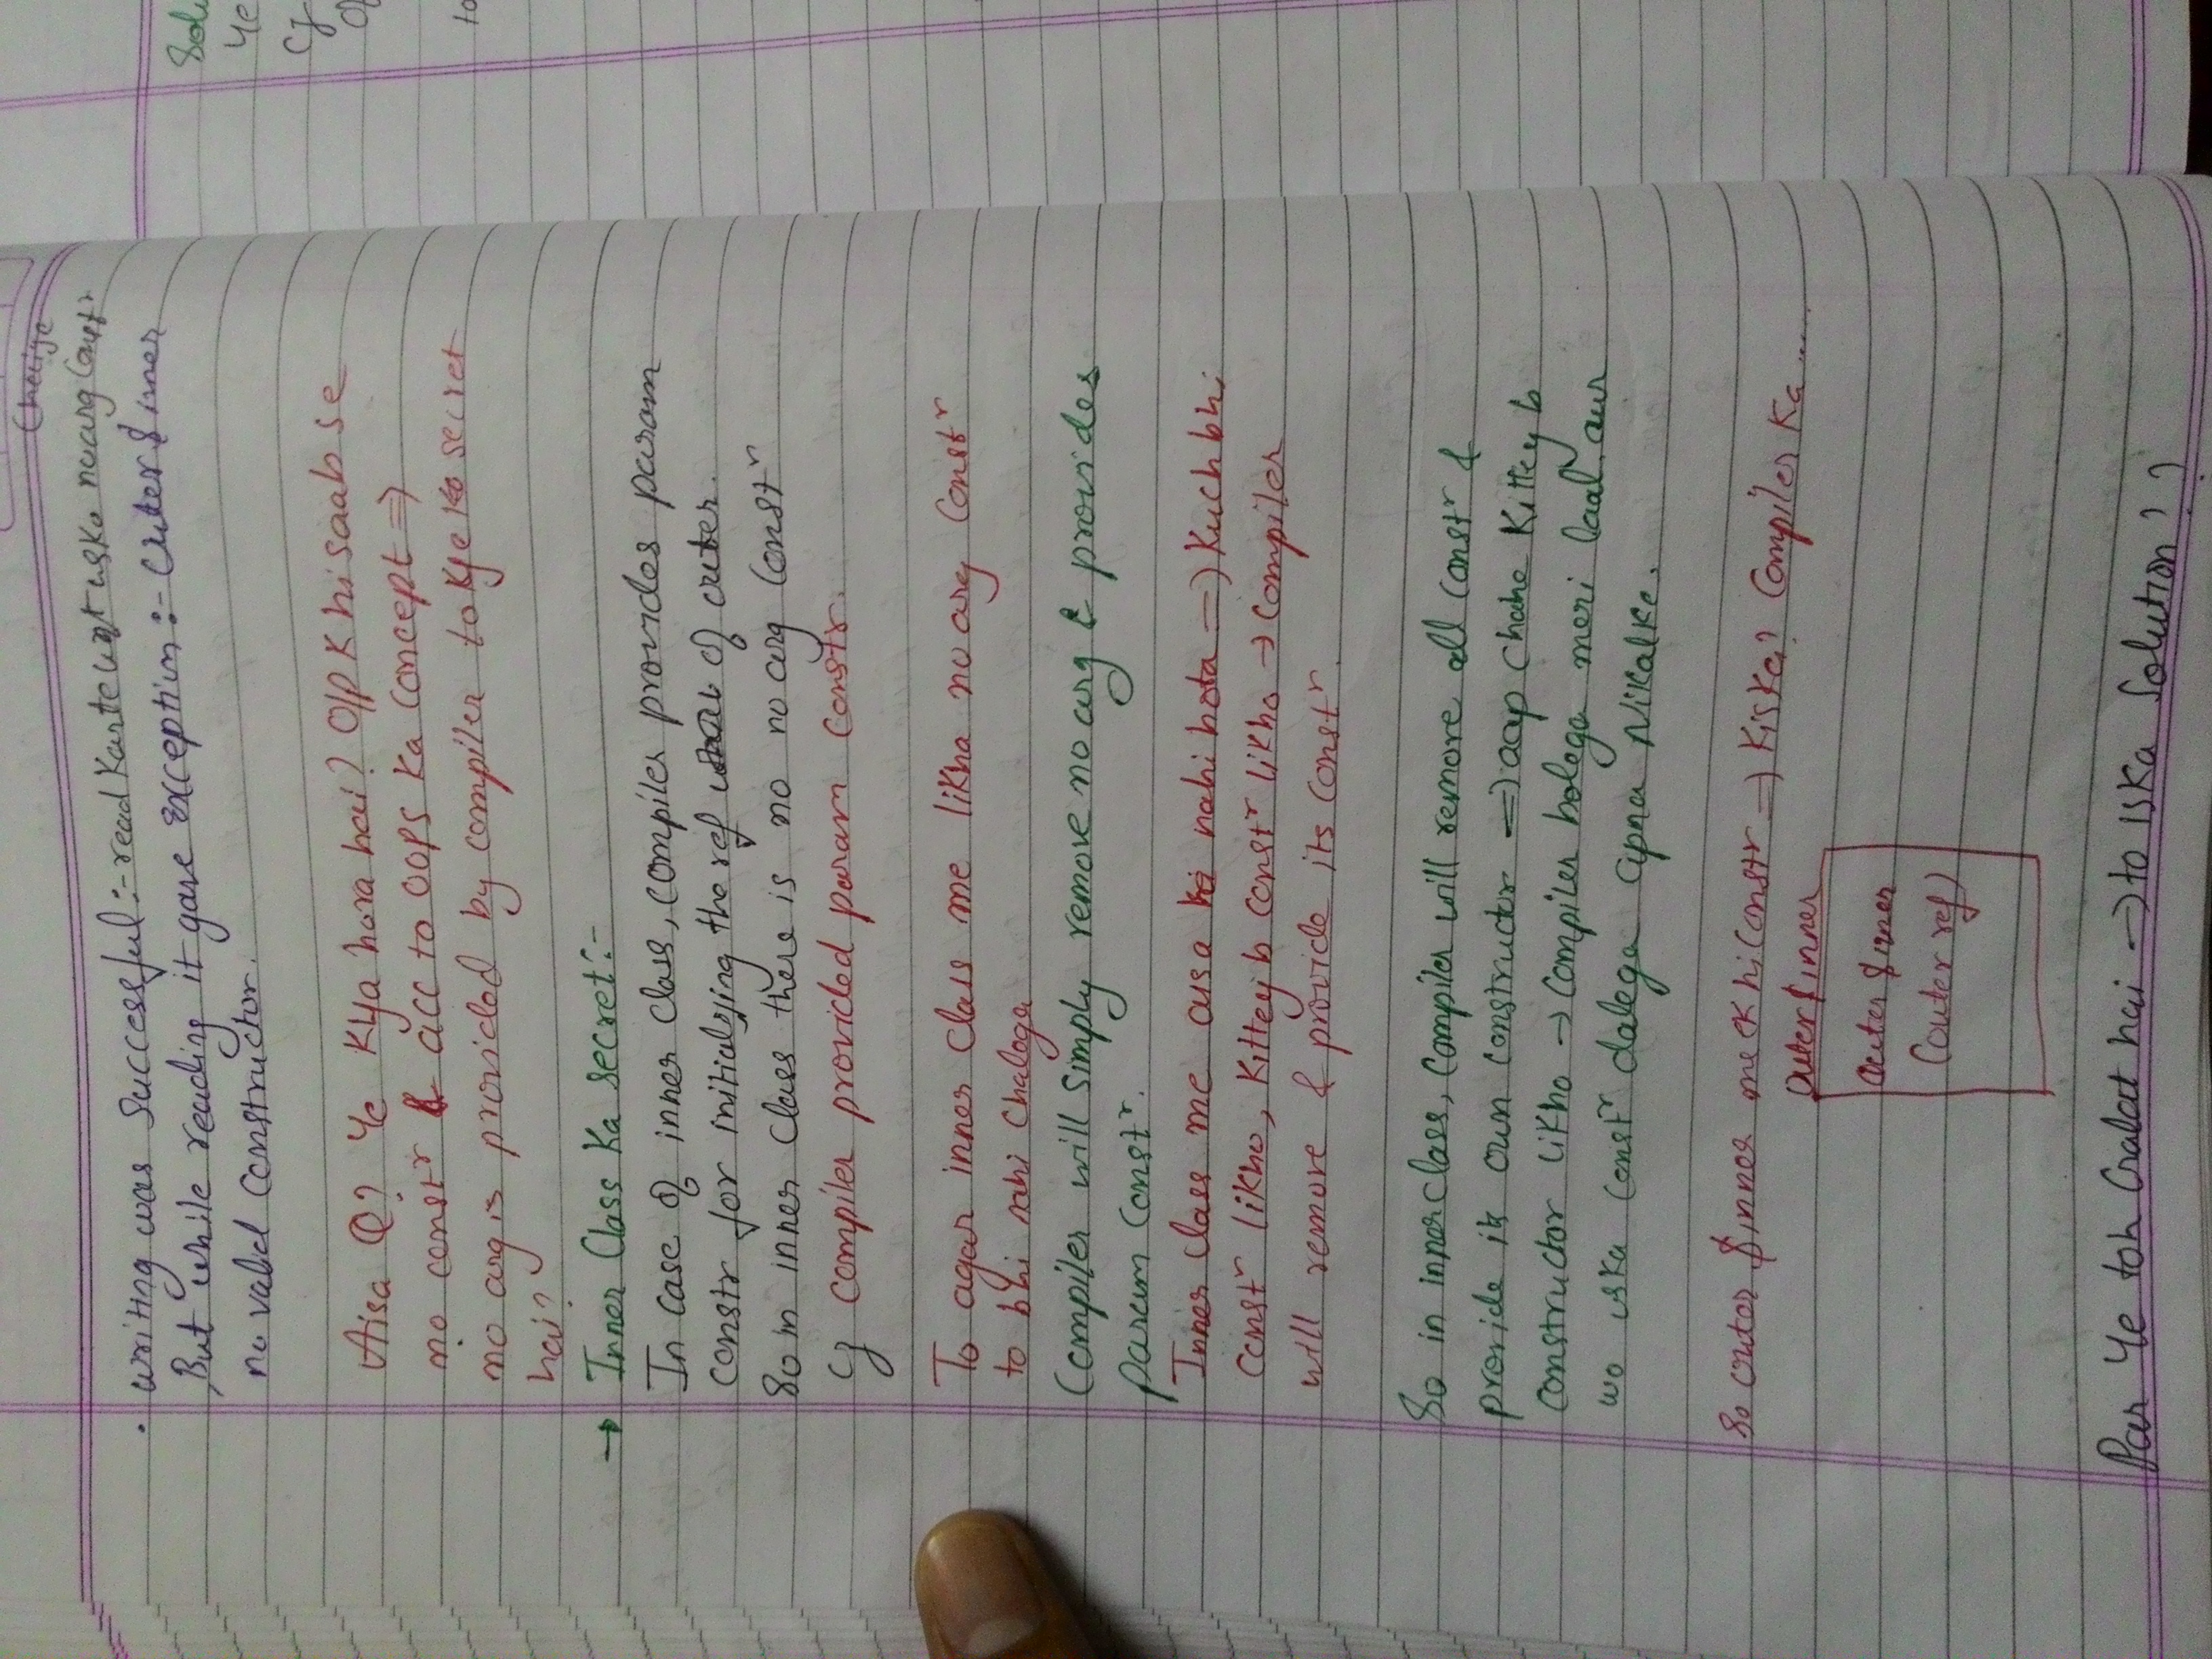 Chaiye
. writing was Successful:- read Karte waqt uska no arg Constr
But while reading it gave Exception:- Outer $ inner
no valid constructor.
Aisa Q? Ye Kya hora hai? O/P K hisaab se
no constr & acc to OOPS Ka concept =>
no arg is provided by compiler to kye ko secret
hai?
→ Inner Class Ka secret:-
In case of inner class, compiler provides param
constr for initialising the ref of outer.
So in inner class there is no no arg Constr
compiler provided param constr.
To agar inner class me likha no arg Constr
to bhi nahi Chalega
Compiler will simply remove no arg & provides
param Constr.
Inner class me aisa nahi hota => Kuch bhi
Constr likho, Kitteyb constr likho → Compiler
will remove & provide its constr.
So in inner class, compiler will remove all constr &
provide its own constructor => aap chahe Kitteyb
constructor likho → compiler bolega meri laal aur
wo uska constr dalega apna Nikalke.
So outer $ inner me ek hi constr => Kiska? Compiler Ka .....
Outer $ inner
Outer $ inner
(outer ref)
Par Ye toh Galat hai → to iska Solution??
Solu
Ye
cz
of
to